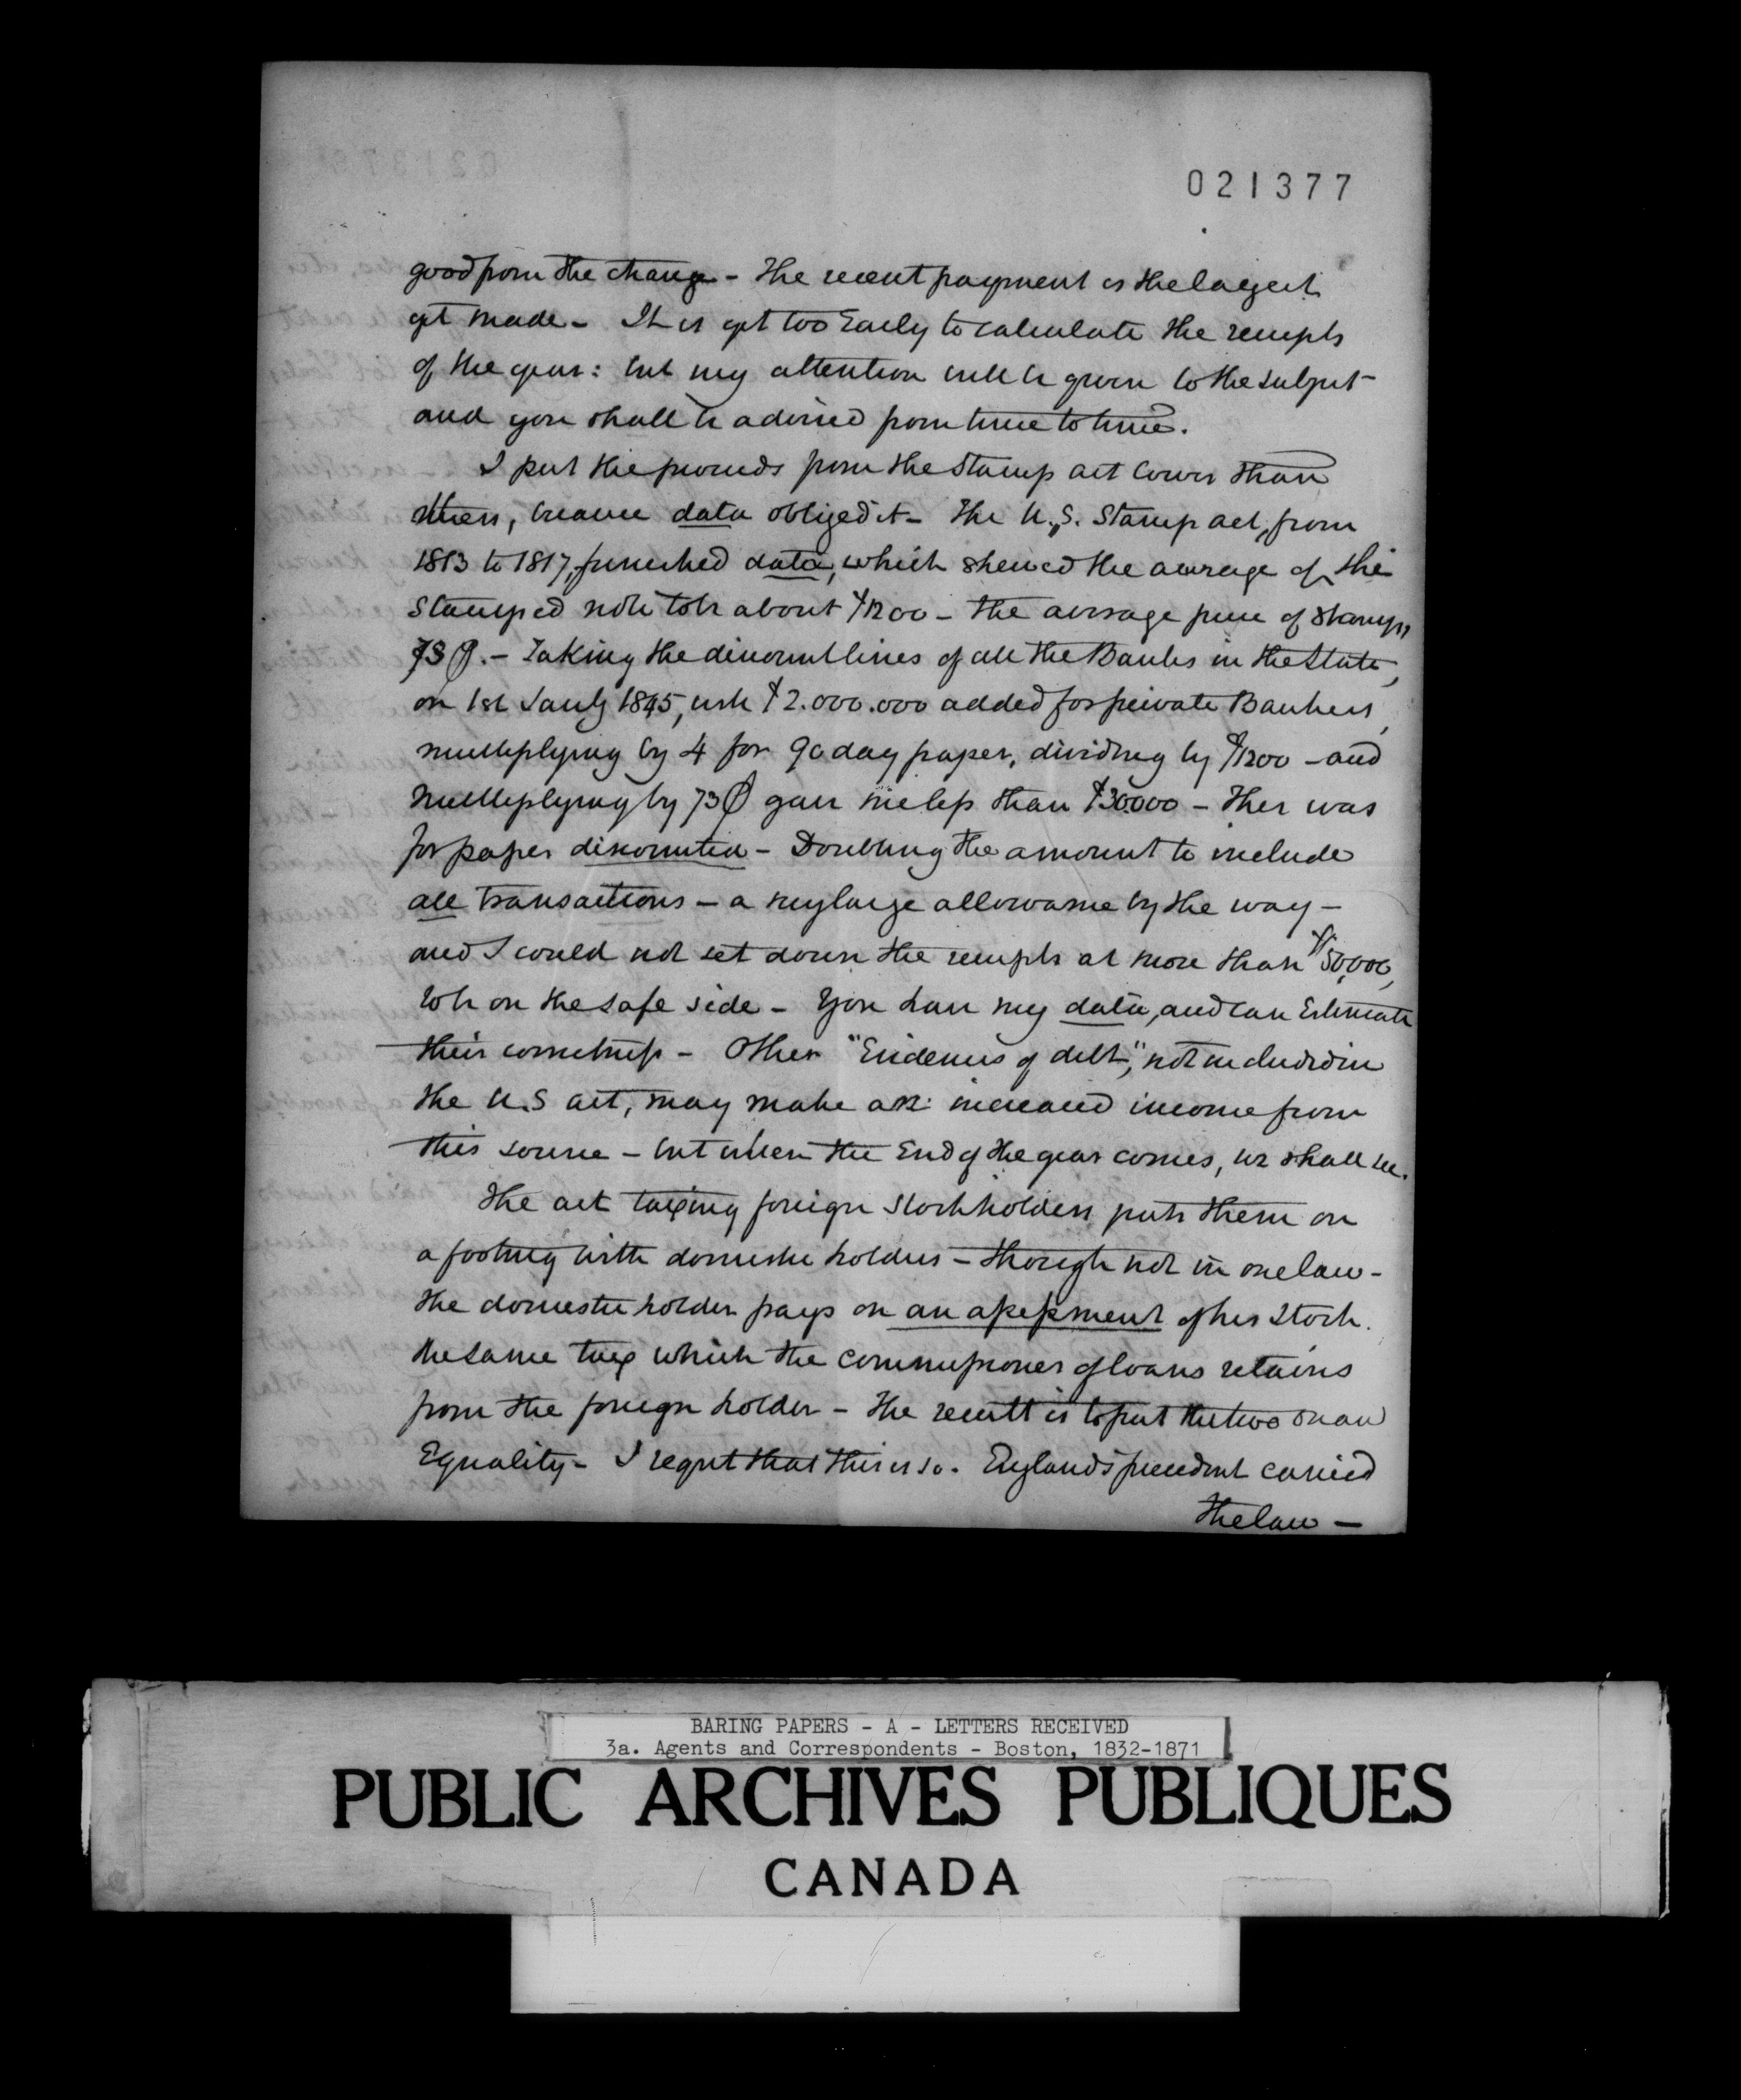 021377
good from the change - The recent payment is the largest
yet made - It is yet too Early to calculate the receipts
of the year: but my attention will be given to the subject -
and you shall be advised from time to time.
I put the proceeds from the Stamp act lower than
others, because data obliged it - The U.S. Stamp act, from
1813 to 1817, furnished data, which shewed the average of the
Stamped note to be about $1200 - the average price of stamps,
73 ¢. - Taking the discount lines of all the Banks in the State,
on 1st Jany 1845, with $2.000.000 added for private Bankers,
multiplying by 4 for 90 day paper, dividing by $1200 - and
multiplying by 73 ¢ gave me less than $30.000 - This was
for paper discounted - Doubling the amount to include
all transactions - a very large allowance by the way -
and I could not set down the receipts at more than $50,000,
to be on the safe side - You have my data, and can Estimate
their correctness - Other "Evidences of debt," not included in
the U.S act, may make an increased income from
this source - but when the End of the year comes, we shall see.
The act taxing foreign Stockholders puts them on
a footing with domestic holders - though not in one law -
the domestic holder pays on an assessment of his Stock.
the same tax which the commissioner of loans retains
from the foreign holder - The result is to put the two on an
Equality - I regret that this is so. England's precedent carried
the law -
BARING PAPERS - A - LETTERS RECEIVED
3a. Agents and Correspondents - Boston, 1832-1871
PUBLIC ARCHIVES PUBLIQUES
CANADA